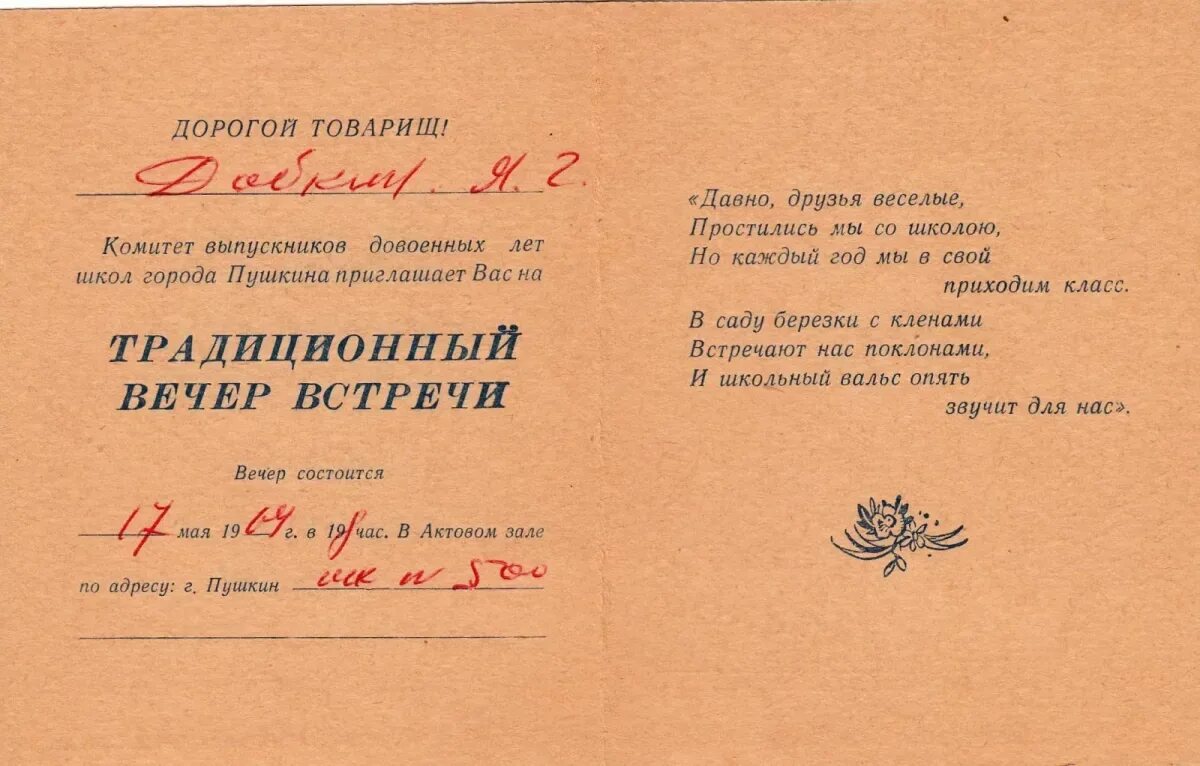 ДОРОГОЙ ТОВАРИЩ!
Добкин. Я. Г.
Комитет выпускников довоенных лет
школ города Пушкина приглашает Вас на
ТРАДИЦИОННЫЙ
ВЕЧЕР ВСТРЕЧИ
Вечер состоится
17 мая 1969 г. в 18 час. В Актовом зале
по адресу: г. Пушкин шк № 500
«Давно, друзья веселые,
Простились мы со школою,
Но каждый год мы в свой
приходим класс.
В саду березки с кленами
Встречают нас поклонами,
И школьный вальс опять
звучит для нас».